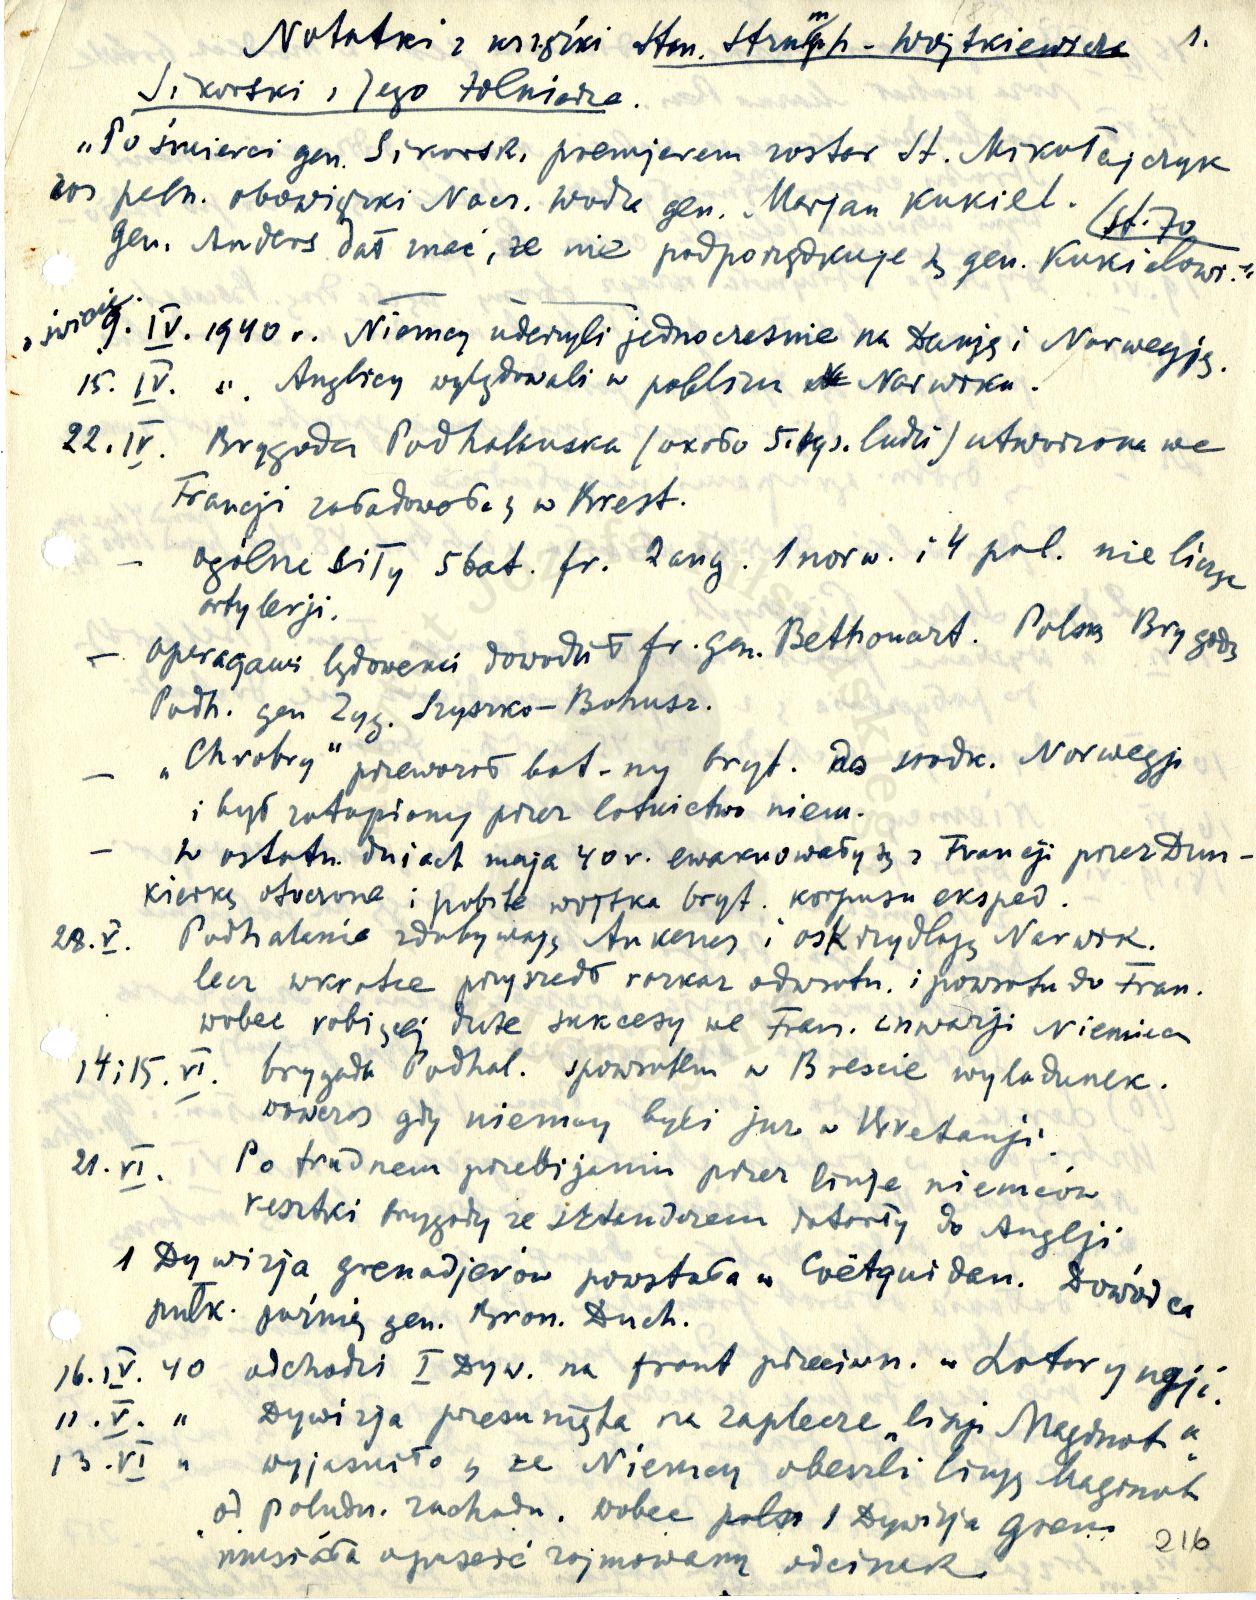 Notatki z książki Stan. Strumph-Wojtkiewicza 1.
Sikorski i Jego żołnierze.
„Po śmierci gen. Sikorsk. premjerem został St. Mikołajczyk
zaś pełn. obowiązki Nacz. wodza gen. Marjan Kukiel. (st. 70
Gen. Anders dał znać, że nie podporządkuje się gen. Kukielowi."
9. IV. 1940 r. Niemcy uderzyli jednocześnie na Danję i Norwegję.
15. IV. „ Anglicy wylądowali w pobliżu Narwiku.
22. IV. Brygada Podhalańska (około 5. tys. ludzi) utworzona we
Francji załadowała się w Brest.
— ogólne siły 5 bat. fr. 2 ang. 1 norw. i 4 pol. nie licząc
artylerji.
— operacjami lądowemi dowodził fr. gen. Bethouart. Polską Brygadą
Podh. gen Zyg. Szyszko-Bohusz.
— „Chrobry" przewoził bat-ny bryt. do środk. Norwegji
i był zatopiony przez lotnictwo niem.
— w ostatn. dniach maja 40 r. ewakuowały się z Francji przez Dun-
kierkę otoczone i pobite wojska bryt. korpusu eksped.
28. V. Podhalanie zdobywają Ankenes i oskrzydlają Narwik.
lecz wkrótce przyszedł rozkaz odwrotu. i powrotu do Fran.
wobec robiącej duże sukcesy we Fran. inwazji Niemiec
14 i 15. VI. brygada Podhal. spowrotem w Breście wyładunek.
wówczas gdy niemcy byli już w Bretanji.
21. VI. Po trudnem przebijaniu przez linje niemców
resztki brygady ze sztandarem dotarły do Anglji
1 Dywizja grenadjerów powstała w Coëtquidan. Dowódca
pułk. późnię gen. Bron. Duch.
16. IV. 40 odchodzi I Dyw. na front przeciwn. w Lotaryngji.
11. V. „ Dywizja przesunięta na zaplecze „linji Maginot"
13. VI „ wyjaśniło się że Niemcy obeszli linję Maginot
od południ. zachodu. wobec 1 Dywizja Gren.
musiała opuścić zajmowany odcinek
216